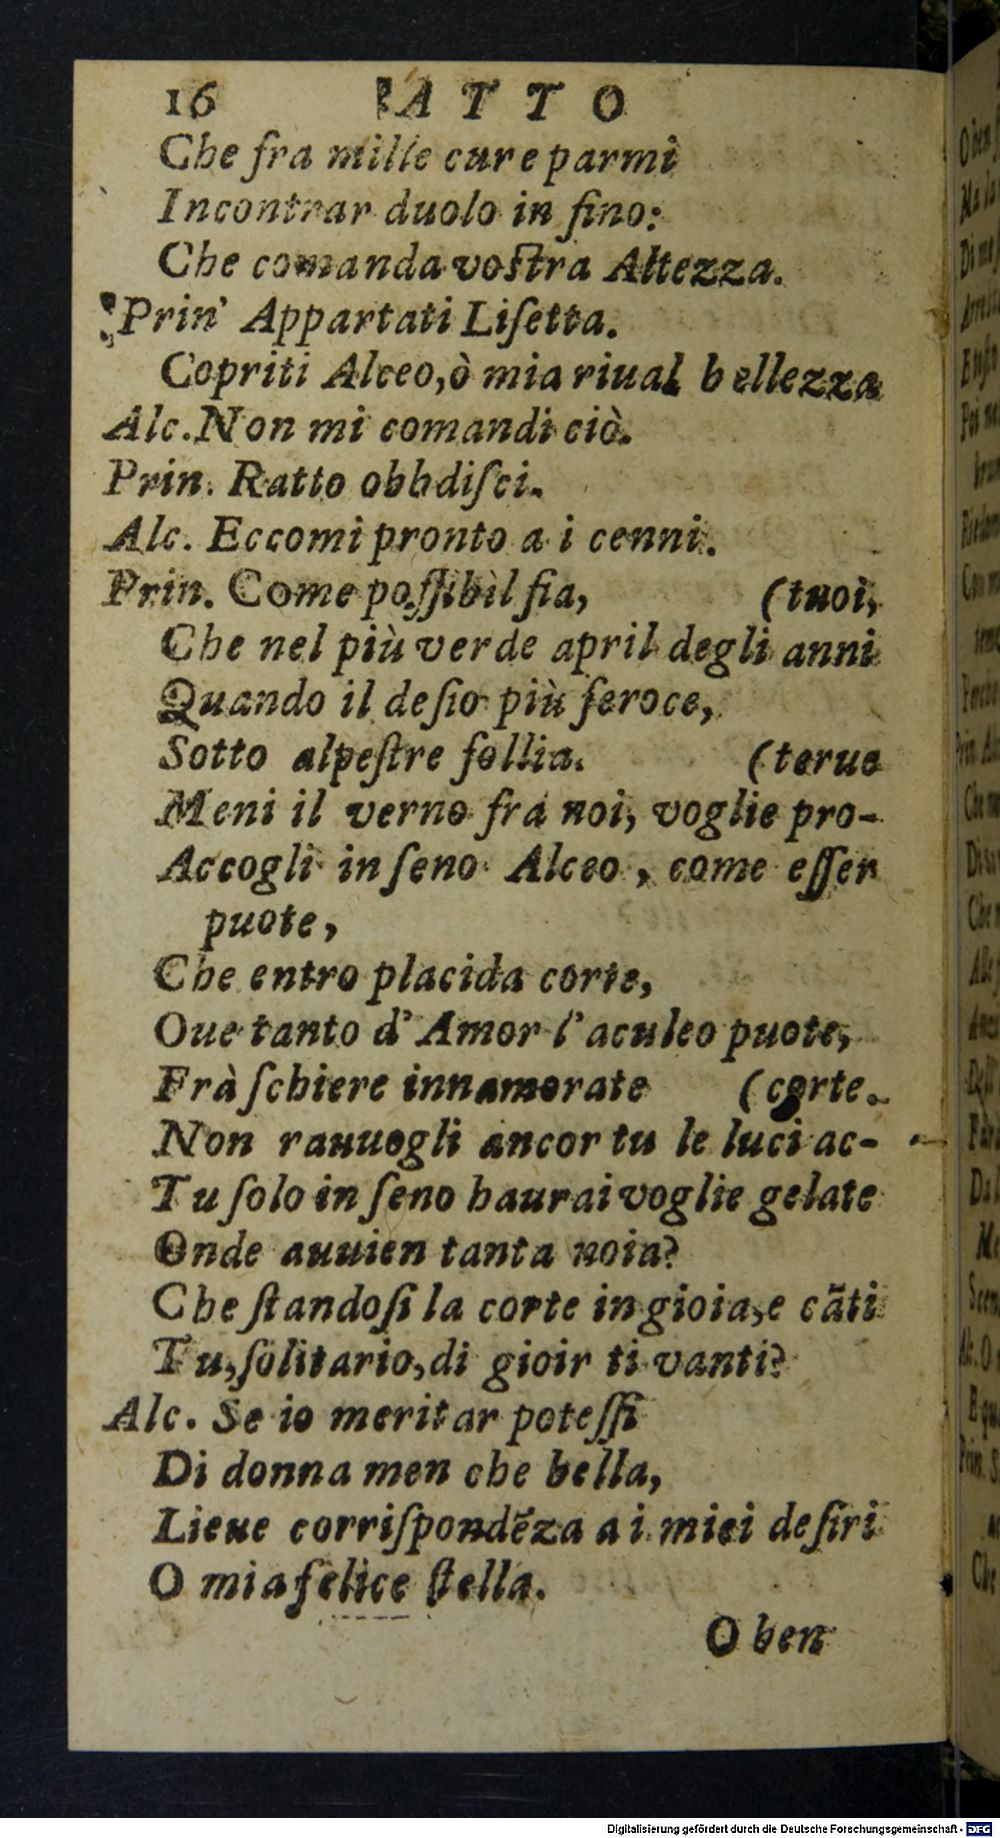 16 ATTO
Che fra mille cure parmi
Incontrar duolo in fino:
Che comanda voſtra Altezza.
Prin' Appartati Liſetta.
Copriti Alceo, ò mia riual bellezza
Alc. Non mi comandi ciò.
Prin. Ratto obbdiſci.
Alc. Eccomi pronto a i cenni.
Prin. Come poſſibil ſia, (tuoi,
Che nel più verde april degli anni
Quando il deſio più feroce,
Sotto alpeſtre follia. (terue
Meni il verno frà noi, voglie pro-
Accogli in ſeno Alceo, come eſſer
puote,
Che entro placida corte,
Oue tanto d' Amor l'aculeo puote,
Frà ſchiere innamorate (corte.
Non rauuogli ancor tu le luci ac-
Tu ſolo in ſeno haurai voglie gelate
Onde auuien tanta noia?
Che ſtandoſi la corte in gioia, e cãti
Tu, ſolitario, di gioir ti vanti?
Alc. Se io meritar poteſſi
Di donna men che bella,
Lieue corriſpondẽza a i miei deſiri
O mia felice ſtella.
O ben
Digitalisierung gefördert durch die Deutsche Forschungsgemeinschaft - DFG